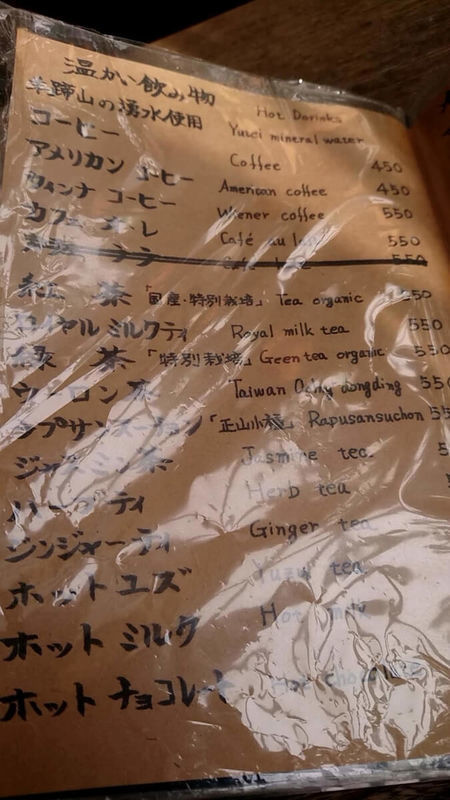 温かい飲み物 Hot Dorinks
羊蹄山の湧水使用 Yusei mineral water
コーヒー Coffee 450
アメリカン コーヒー American coffee 450
ウィンナ コーヒー Wiener coffee 550
カフェ オーレ Café au lait 550
550
紅茶「国産・特別栽培」 Tea organic 550
ロイヤル ミルクティ Royal milk tea 550
緑茶「特別栽培」 Geen tea organic 550
ウーロン茶 Taiwan dongding 550
ラプサンスーション「正山小種」 Rapusansuchon 55
ジャスミン茶 Jasmine tea 5
ハーブティ Herb tea
ジンジャーティ Ginger tea
ホットユズ Yuzu tea
ホット ミルク Hot milk
ホット チョコレート Hot chocolate